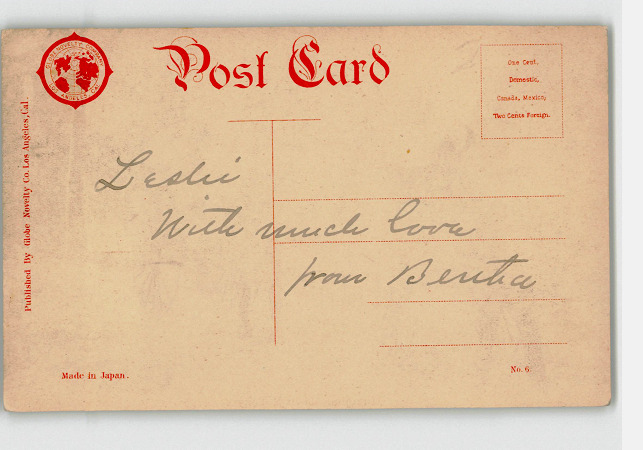 GLOBE NOVELTY COMPANY
LOS ANGELES, CAL.
Post Card
One Cent,
Domestic,
Canada, Mexico,
Two Cents Foreign.
Published By Globe Novelty Co. Los Angeles, Cal.
Leslie
With much love
from Bertha
Made in Japan.
No. 6.